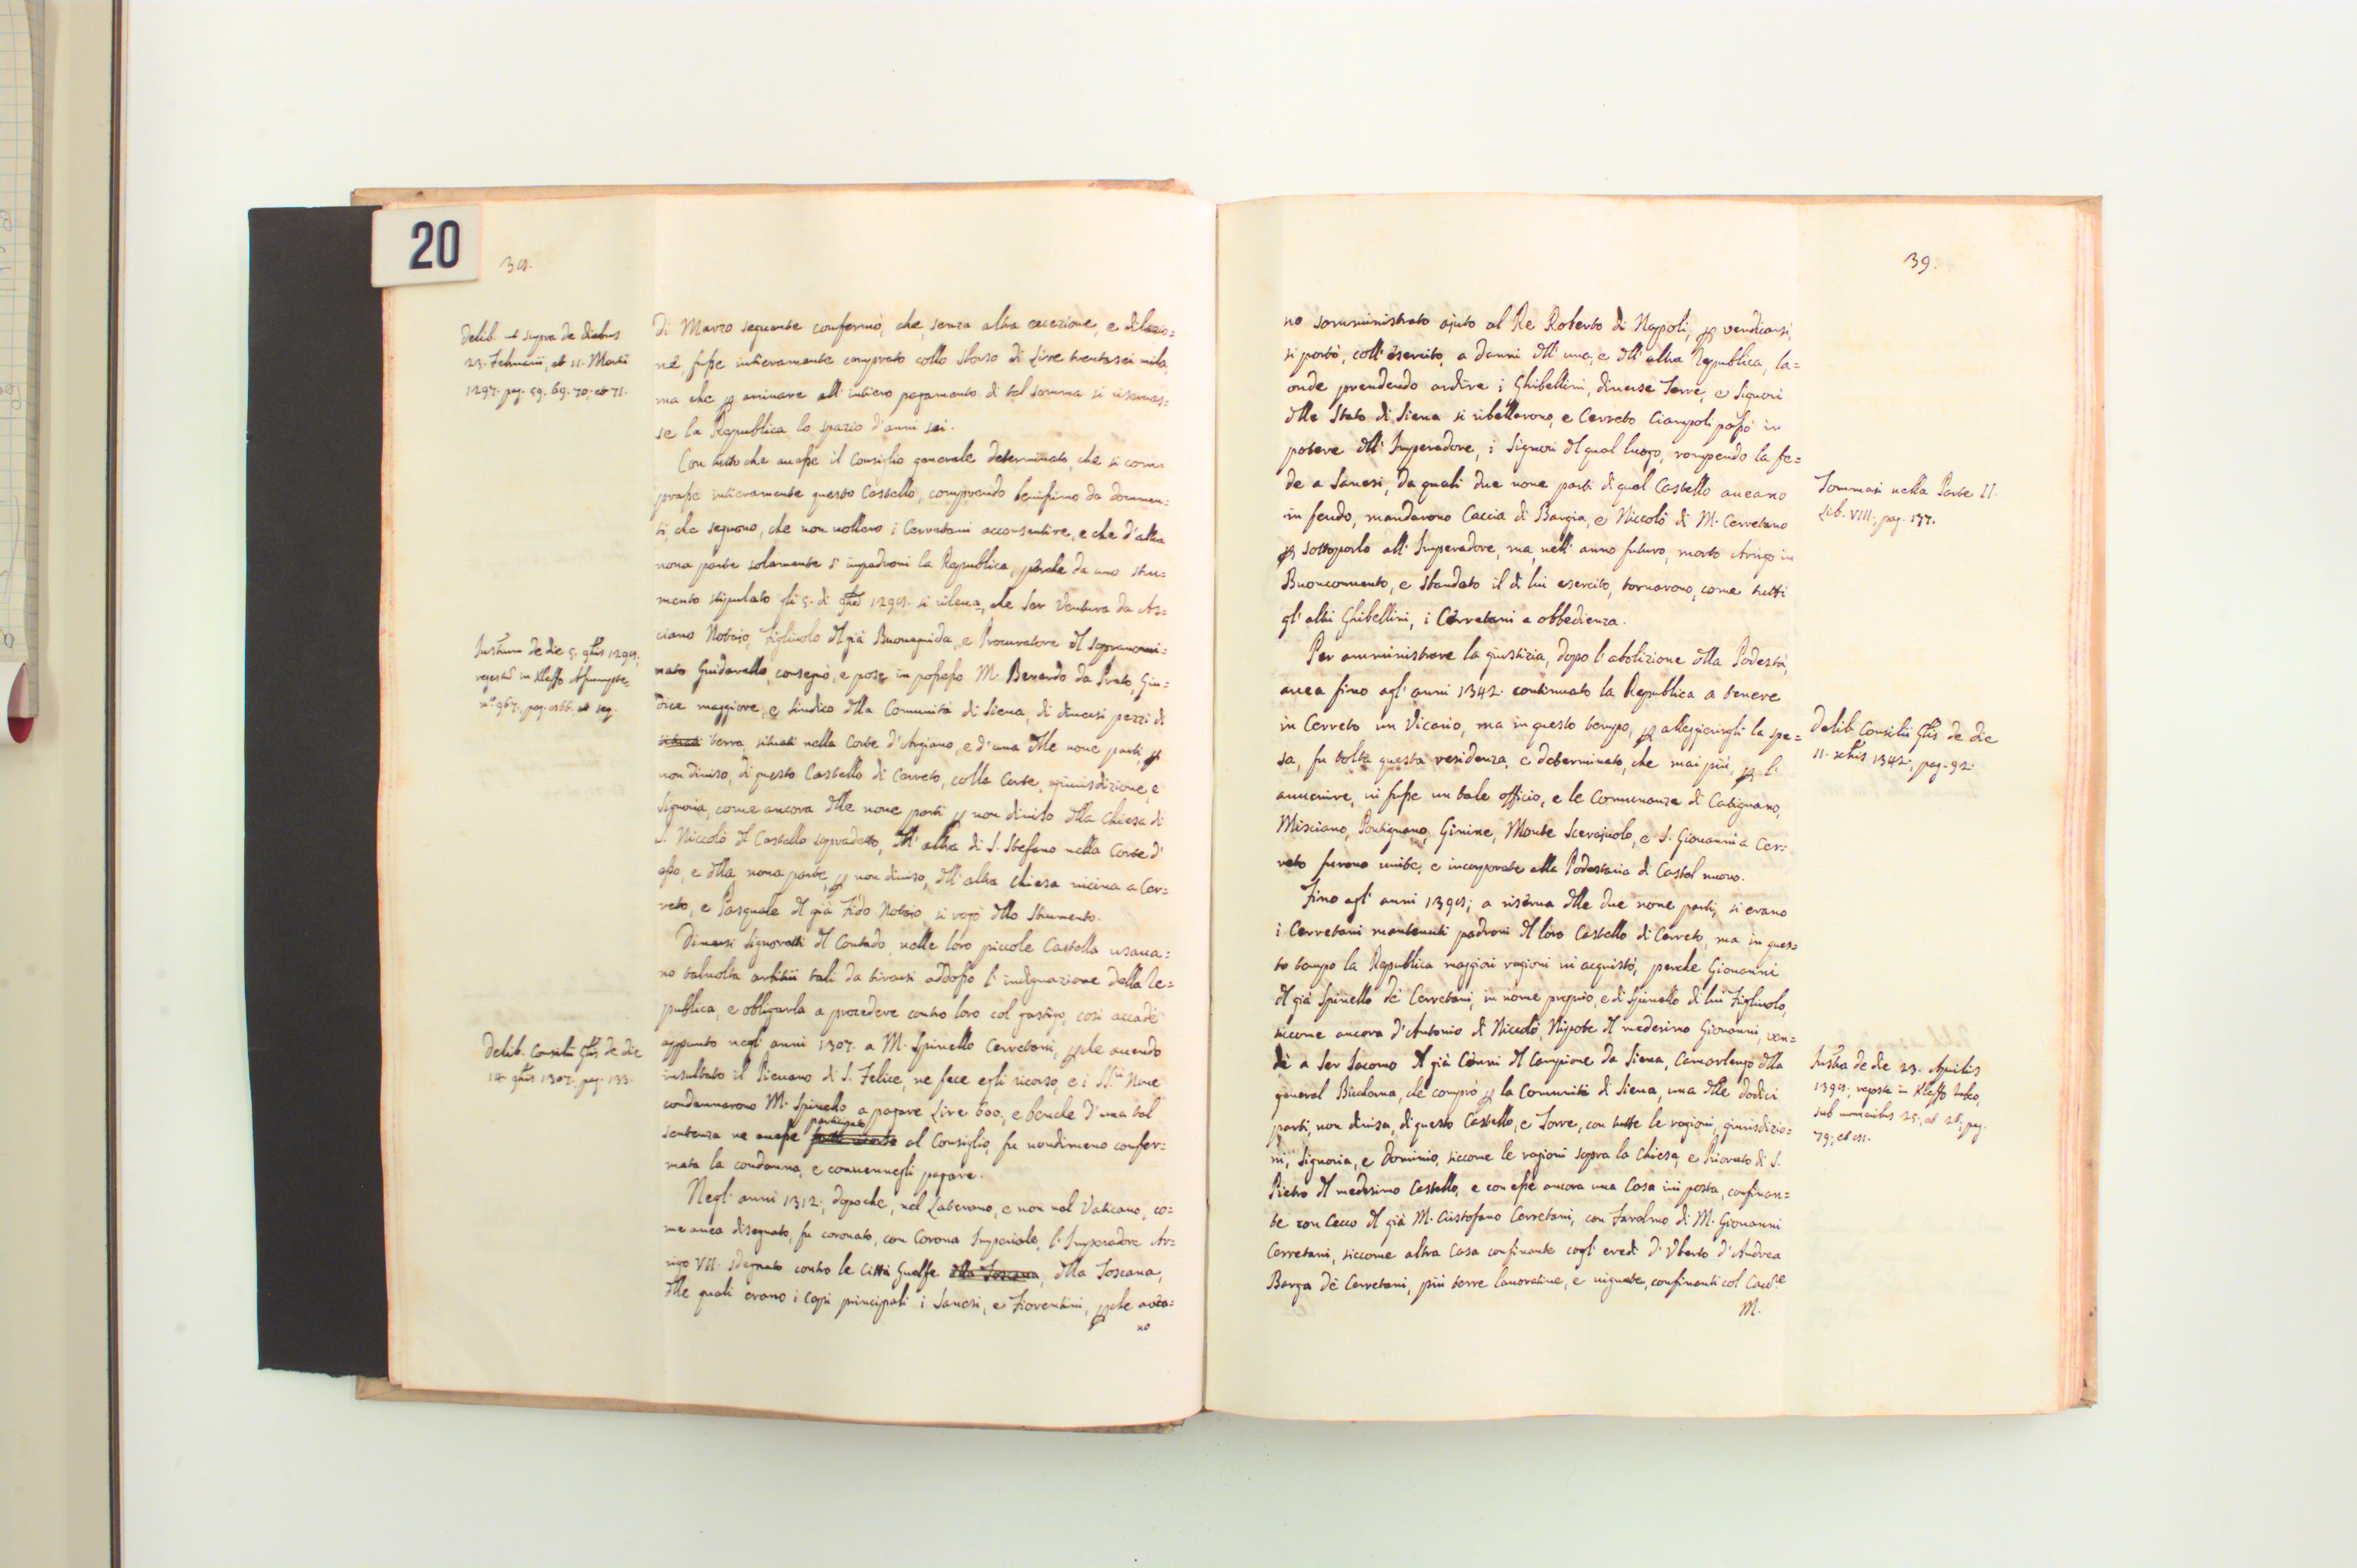 20
38.
Delib. ut supra de diebus
23. Februarii, et 11. Martii
1297. pag. 59. 69. 70. et 71.
di Marzo seguente confermò, che, senza altra eccezione, e dilazio=
ne, fusse intieramente comprato collo sborso di Lire trentasei mila,
ma che per arrivare all' intiero pagamento di tal somma si riservas=
se la Republica lo spazio d'anni sei.
Con tutto che avesse il Consiglio generale determinato, che si com=
prasse intieramente questo Castello, comprendo benissimo da documen=
ti, che seguono, che non vollero i Cerretani acconsentire, e che d'altra
nona parte solamente s' impadronì la Republica, perche da uno stru=
mento stipulato gli 5. di 9bre 1298. si rileva, che Ser Ventura da As=
ciano Notaio, Figliuolo del già Buonaguida, e Procuratore del sopranomi=
Instrum de die 5. 9bris 1298.
nato Guidarello, consegnò, e pose in possesso M. Berardo da Prato, Giu=
n.° 967. pag. 866. et seq.
dice maggiore, e sindico della Comunità di Siena, di diversi pezzi di
situati terra, situati nella Corte d'Argiano, e d'una delle none parti, per
non diviso, di questo Castello di Cerreto, colla Corte, giurisdizione, e
Signoria, come ancora delle none parti per non diviso della Chiesa di
S. Niccolò del Castello sopradetto, dell' altra di S. Stefano nella Corte d'
esso, e della nona parte, per non diviso, dell' altra Chiesa vicina a Cer=
reto, e Pasquale del già Fido Notaio, si rogò dello strumento.
Diversi Signorotti del Contado, nelle loro piccole Castella usava=
no talvolta arbitrii tali da tirarsi addosso l' indignazione della Re=
publica, e obligarla a procedere contro loro col gastigo, così accadè
Delib. Consilii Glis de die
appunto negl' anni 1307. a M. Spinello Cerretani, perche avendo
14. 9bris 1307. pag. 133.
insultato il Pievano di S. Felice, ne fece egli ricorso, e i SS.ri Nove
condannarono M. Spinello a pagare Lire 600, e benche d' una tal
participato
sentenza ne avesse al Consiglio, fu nondimeno confer=
mata la condanna, e convennegli pagare.
Negl' anni 1312; dopo che, nel Laterano, e non nel Vaticano, co=
me avea disegnato, fu coronato, con Corona Imperiale, l' Imperadore Ar=
rigo VII. sdegnato contro le Città Guelfe della Toscana, della Toscana,
delle quali erano i capi principali i Sanesi, e Fiorentini, perche avea=
no
39.
no somministrato ajuto al Re Roberto di Napoli, per vendicarsi,
si portò, coll' esercito, a danni dell' una, e dell' altra Republica, la=
onde prendendo ardire i Ghibellini, diverse Terre, e Signori
dello Stato di Siena si ribellarono, e Cerreto Ciampoli passò in
potere dell' Imperadore, i Signori del qual luogo, rompendo la fe=
de a Sanesi, da quali due none parti di quel Castello aveano
Tommasi nella Parte II.
in feudo, mandarono Caccia di Bargia, e Niccolò di M. Cerretano
Lib. VIII. pag. 137.
per sottoporlo all' Imperadore, ma, nell' anno futuro, morto Arrigo in
Buonconvento, e sbandato il di lui esercito, tornarono, come tutti
gl' altri Ghibellini, i Cerretani a obbedienza.
Per amministrare la giustizia, dopo l' abolizione della Podestà,
avea fino agl' anni 1342. continuato la Republica a tenere
in Cerreto un Vicario, ma in questo tempo, per alleggierirgli la spe=
Delib. Consilii Glis de die
11. 1342. pag. 92.
sa, fu tolta questa residenza, e determinato, che mai più, per l'
avvenire, vi fusse un tale officio, e le Comunanze di Catignano,
Misciano, Pontignano, Ginine, Monte Scevajuolo, e S. Giovanni a Cer=
reto furono unite, e incorporate alla Podestaria di Castel nuovo.
Fino agl' anni 1398; a riserva delle due none parti, si erano
i Cerretani mantenuti padroni del loro Castello di Cerreto, ma in ques=
to tempo la Republica maggiori ragioni vi acquistò, perche Giovanni
del già Spinello de' Cerretani, in nome proprio, e di Spinello di lui Figliuolo,
siccome ancora d'Antonio di Niccolò, Nipote del medesimo Giovanni, ven=
dè a Ser Iacomo del già Conni del Campione da Siena, Camarlengo della
Instra de die 23. Aprilis
general Biccherna, che comprò per la Comunità di Siena, una delle dodici
sub numeribus 25, et 26; pag.
parti, non divisa, di questo Castello, e Torre, con tutte le ragioni, giurisdizio=
79; et 81.
ni, Signoria, e Dominio, siccome le ragioni sopra la Chiesa, e Priorato di S.
Pietro del medesimo Castello, e con esse ancora una Casa ivi posta, confinan=
te con Cecco del già M. Cristofano Cerretani, con Farolmo di M. Giovanni
Cerretani, siccome altra Casa confinante cogl' eredi d' Uberto d' Andrea
Barga de' Cerretani, più terre lavorative, e vignate, confinanti col Cav.re
M.